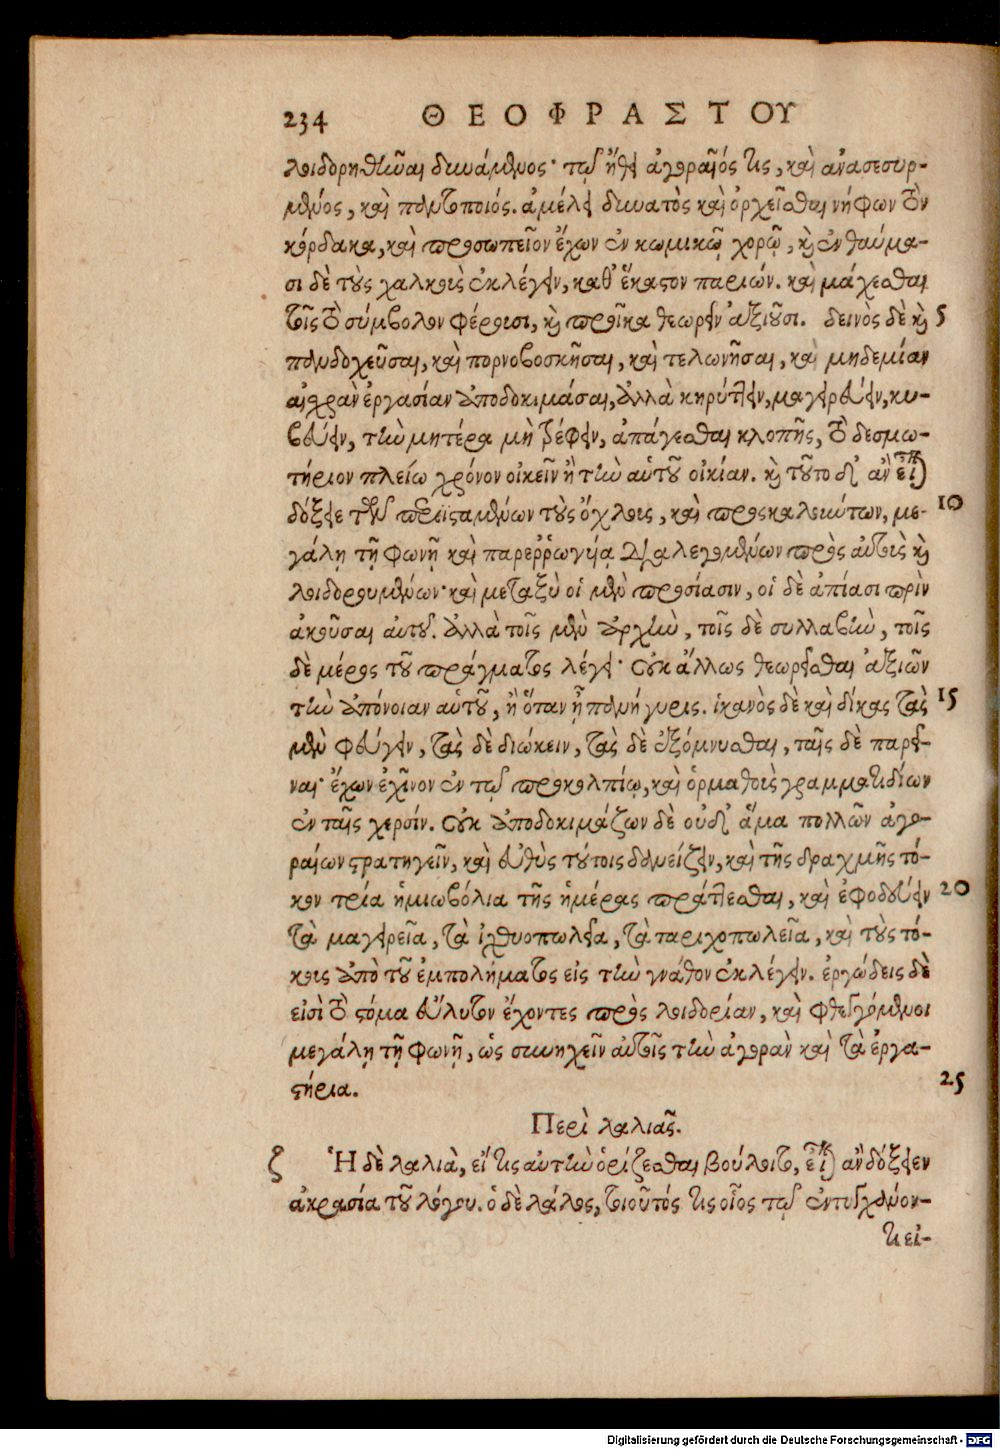 234 ΘΕΟΦΡΑΣΤΟΥ
λοιδορηθῆναι δυνάμενος· τῷ ἤθει ἀγοραῖός τις, καὶ ἀνασεσυρ-
μένος, καὶ παντοποιός. ἀμέλει δυνατὸς καὶ ὀρχεῖσθαι νήφων τὸν
κόρδακα, καὶ προσωπεῖον ἔχων ἐν κωμικῷ χορῷ, καὶ ἐν θαύμα-
σι δὲ τοὺς χαλκοῦς ἐκλέγειν, καθ' ἕκαστον παριών. καὶ μάχεσθαι
τοῖς τὸ σύμβολον φέρουσι, καὶ προῖκα θεωρεῖν ἀξιοῦσι. δεινὸς δὲ καὶ 5
πανδοχεῦσαι, καὶ πορνοβοσκῆσαι, καὶ τελωνῆσαι, καὶ μηδεμίαν
αἰσχρὰν ἐργασίαν ἀποδοκιμάσαι, ἀλλὰ κηρύττειν, μαγειρεύειν, κυ-
βεύειν, τὴν μητέρα μὴ τρέφειν, ἀπάγεσθαι κλοπῆς, τὸ δεσμω-
τήριον πλείω χρόνον οἰκεῖν ἢ τὴν αὑτοῦ οἰκίαν. καὶ τοῦτο δ' ἂν εἶναι
δόξειε τῶν περιϊσταμένων τοὺς ὄχλους, καὶ προσκαλούντων, με- 10
γάλῃ τῇ φωνῇ καὶ παρεῤῥωγυίᾳ διαλεγομένων πρὸς αὐτοὺς καὶ
λοιδορουμένων· καὶ μεταξὺ οἱ μὲν προσίασιν, οἱ δὲ ἀπίασι πρὶν
ἀκοῦσαι αὐτοῦ. ἀλλὰ τοῖς μὲν ἀρχὴν, τοῖς δὲ συλλαβὴν, τοῖς
δὲ μέρος τοῦ πράγματος λέγει· οὐκ ἄλλως θεωρεῖσθαι ἀξιῶν
τὴν ἀπόνοιαν αὑτοῦ, ἢ ὅταν ᾖ πανήγυρις. ἱκανὸς δὲ καὶ δίκας τὰς 15
μὲν φεύγειν, τὰς δὲ διώκειν, τὰς δὲ ἐξόμνυσθαι, ταῖς δὲ παρεῖ-
ναι· ἔχων ἐχῖνον ἐν τῷ προκολπίῳ, καὶ ὁρμαθοὺς γραμματιδίων
ἐν ταῖς χερσίν. οὐκ ἀποδοκιμάζων δὲ οὐδ' ἅμα πολλῶν ἀγο-
ραίων στρατηγεῖν, καὶ εὐθὺς τούτοις δανείζειν, καὶ τῆς δραχμῆς τό-
κον τρία ἡμιωβόλια τῆς ἡμέρας πράττεσθαι, καὶ ἐφοδεύειν 20
τὰ μαγειρεῖα, τὰ ἰχθυοπωλεῖα, τὰ ταριχοπωλεῖα, καὶ τοὺς τό-
κους ἀπὸ τοῦ ἐμπολήματος εἰς τὴν γνάθον ἐκλέγειν. ἐργώδεις δὲ
εἰσὶ τὸ στόμα εὔλυτον ἔχοντες πρὸς λοιδορίαν, καὶ φθεγγόμενοι
μεγάλῃ τῇ φωνῇ, ὡς συνηχεῖν αὐτοῖς τὴν ἀγορὰν καὶ τὰ ἐργα-
στήρια. 25
Περὶ λαλιᾶς.
ζ Ἡ δὲ λαλιὰ, εἴ τις αὐτὴν ὁρίζεσθαι βούλοιτο, εἶναι ἂν δόξειεν
ἀκρασία τοῦ λόγου. ὁ δὲ λάλος, τοιοῦτός τις οἷος τῷ ἐντυγχάνον-
τι εἰ-
Digitalisierung gefördert durch die Deutsche Forschungsgemeinschaft - DFG